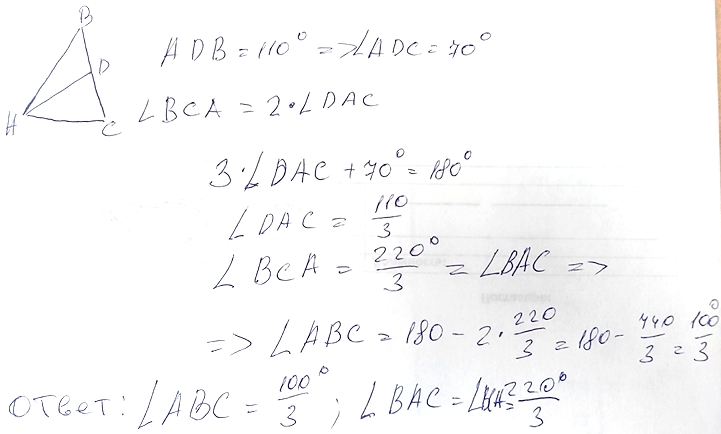 B
D
A
C
ADB = 110° => ∠ADC = 70°
∠BCA = 2·∠DAC
3·∠DAC + 70° = 180°
∠DAC = 110/3
∠BCA = 220°/3 = ∠BAC =>
=> ∠ABC = 180 - 2·220/3 = 180 - 440/3 = 100°/3
ответ: ∠ABC = 100°/3 ; ∠BAC = 220°/3